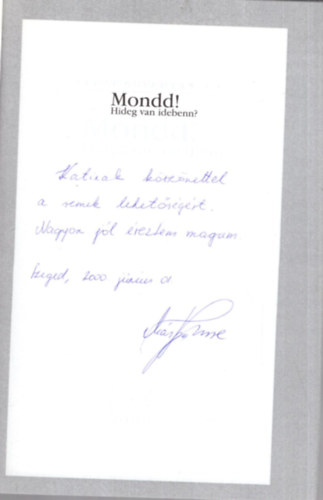 Mondd!
Hideg van idebenn?
Katinak köszönettel
a remek lehetőségért.
Nagyon jól éreztem magam
Szeged, 2000 június 01